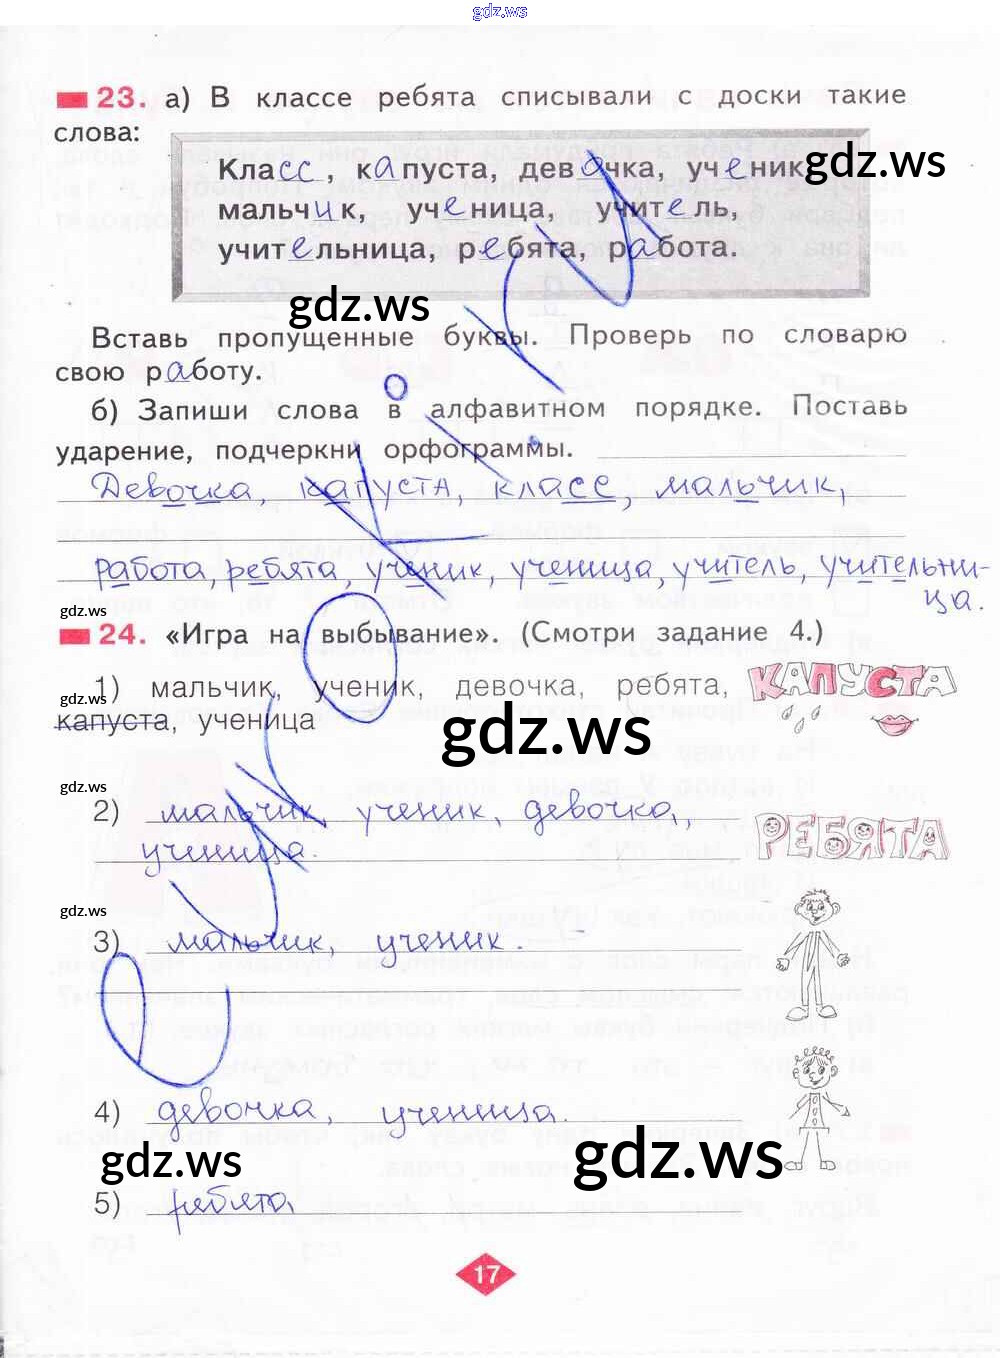 gdz.ws
23. а) В классе ребята списывали с доски такие
слова:
Класс, капуста, девочка, ученик
мальчик, ученица, учитель,
учительница, ребята, работа.
gdz.ws
gdz.ws
Вставь пропущенные буквы. Проверь по словарю
свою работу.
б) Запиши слова в алфавитном порядке. Поставь
ударение, подчеркни орфограммы.
Девочка, капуста, класс, мальчик,
работа, ребята, ученик, ученица, учитель, учительни-
ца.
gdz.ws
24. «Игра на выбывание». (Смотри задание 4.)
1) мальчик, ученик, девочка, ребята,
КАПУСТА
gdz.ws
капуста, ученица
gdz.ws
gdz.ws
2) мальчик, ученик, девочка,
ученица.
РЕБЯТА
gdz.ws
3) мальчик, ученик.
4) девочка, ученица.
gdz.ws
gdz.ws
5) ребята
17